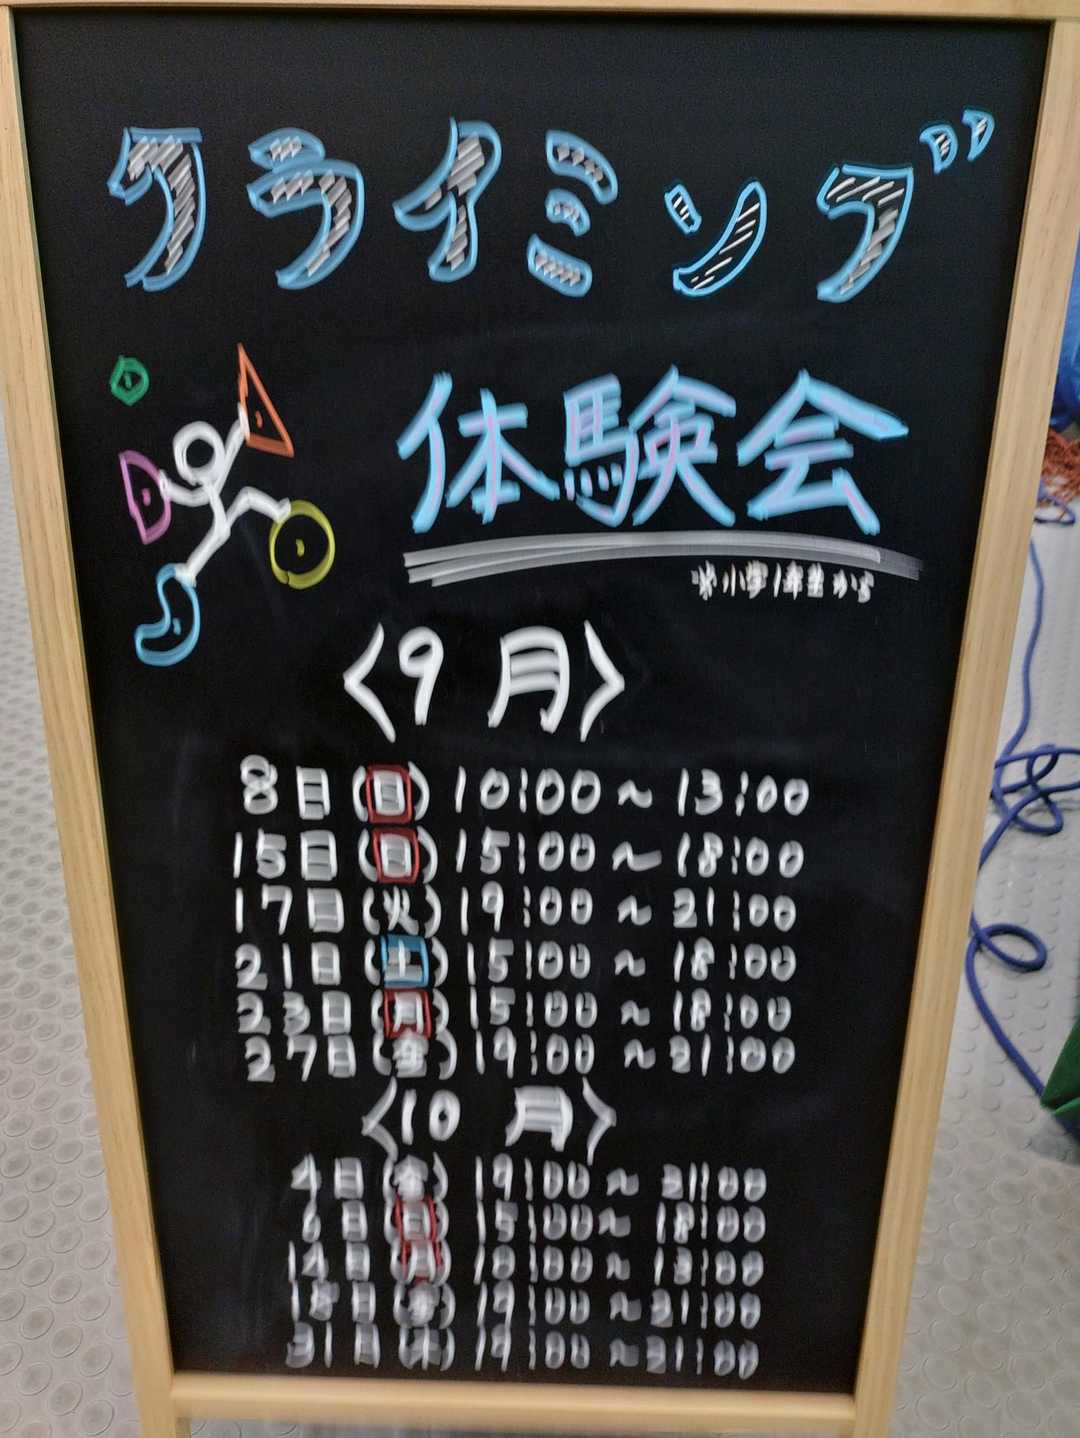 クライミング
体験会
※小学1年生から
〈9月〉
8日(日) 10:00～13:00
15日(日) 15:00～18:00
17日(火) 19:00～21:00
21日(土) 15:00～18:00
23日(月) 15:00～18:00
27日(金) 19:00～21:00
〈10月〉
4日(金) 19:00～21:00
6日(日) 15:00～18:00
14日(月) 10:00～13:00
18日(金) 19:00～21:00
31日(木) 19:00～21:00